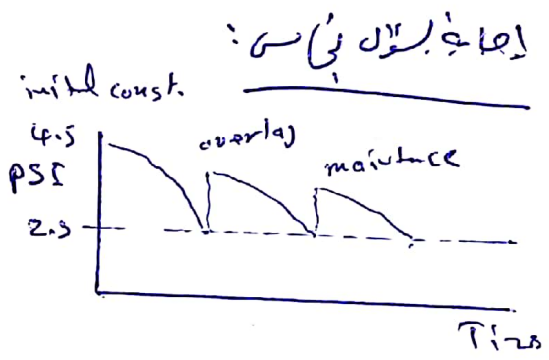 إجابة السؤال الخامس :
initial const.
4.5
overlay
maintance
PSI
2.5
Time